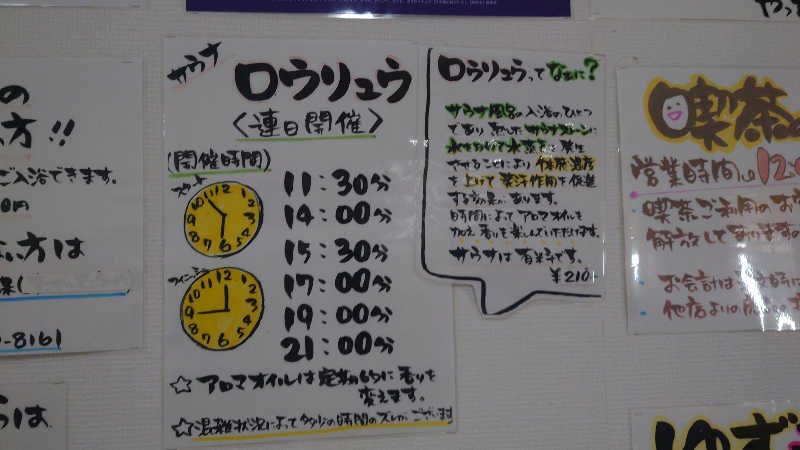 の
方!!
ご入浴できます。
0円
い方は
-8161
は
サウナ
ロウリュウ
〈連日開催〉
(開催時間)
スタート
11:30分
14:00分
15:30分
17:00分
19:00分
21:00分
☆アロマオイルは定期的に香りを
変えます。
☆混雑状況によって多少の時間のズレがございます
ロウリュウってなぁに?
サウナ風呂の入浴のひとつ
であり熱したサウナストーンに
水をかけて水蒸気を発生
させることにより体感温度
を上げて発汗作用を促進
する効果があります。
時間によってアロマオイルを
加え香りを楽しんでいただけます。
サウナは有料です。
¥210
喫茶
営業時間は12
喫茶ご利用のお
解放しておりますの
お会計は
他店より
ゆず